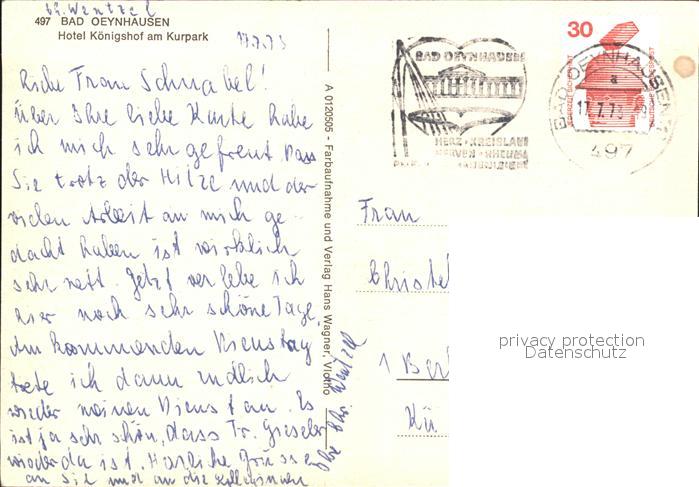 497 BAD OEYNHAUSEN
Hotel Königshof am Kurpark
17.7.73
Liebe Frau Schnabel!
Über Ihre liebe Karte habe
ich mich sehr gefreut. Dass
Sie trotz der Hitze und der
vielen Arbeit an mich ge-
dacht haben ist wirklich
sehr nett. Jetzt verlebe ich
hier noch sehr schöne Tage.
Am kommenden Dienstag
trete ich dann endlich
wieder meinen Dienst an. Es
ist ja sehr schön, dass Fr. Gieseler
wieder da ist. Herzliche Grüsse
an sie und an die Kolleginnen
A 0120505 - Farbaufnahme und Verlag Hans Wagner, Vlotho
BAD OEYNHAUSEN
HERZ · KREISLAUF
NERVEN · RHEUMA
30
DEUTSCHE BUNDESPOST
BAD OEYNHAUSEN
a
17.7.73
497
Frau
Christel
1 Berl
privacy protection
Datenschutz